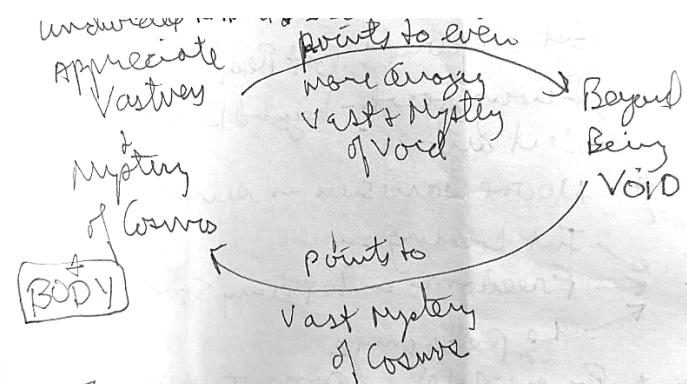 Appreciate
Vastness
&
Mystery
of Cosmos
+
BODY
points to even
more amazing
Vast & Mystery
of Void
Beyond
Being
VOID
points to
Vast Mystery
of Cosmos